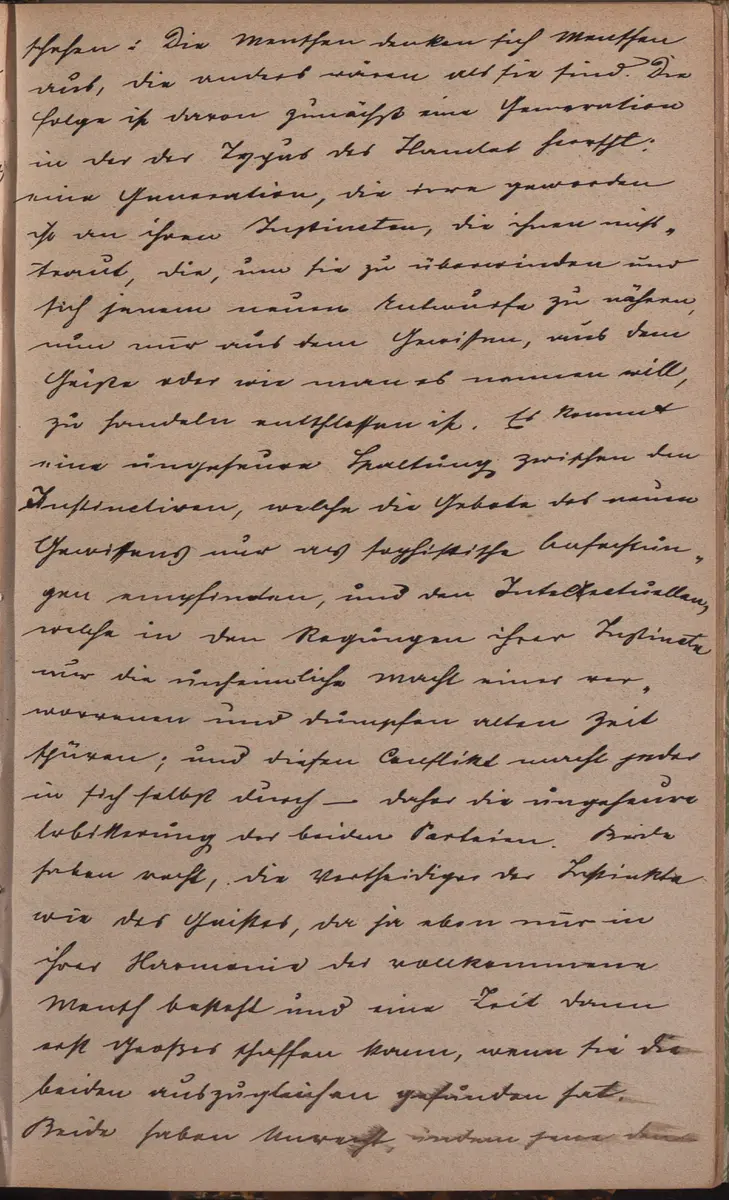 schehen: Die Menschen denken sich Menschen
aus, die anders wären als sie sind. Die
Folge ist davon zunächst eine Generation
in der der Typus des Hamlet herrscht:
eine Generation, die irre geworden
ist an ihren Instincten, die ihnen miß-
traut, die, um sie zu überwinden und
sich jenem neuen Entwurfe zu nähern,
nun nur aus dem Gewissen, aus dem
Geiste oder wie man es nennen will,
zu handeln entschlossen ist. Es kommt
eine ungeheure Spaltung zwischen den
Instinctiven, welche die Gebote des neuen
Gewissens nur als sophistische Anfechtun-
gen empfinden, und den Intellectuellen,
welche in den Regungen ihrer Instincte
nur die unheimliche Macht einer ver-
worrenen und dumpfen alten Zeit
spüren; und diesen Conflikt macht jeder
in sich selbst durch – daher die ungeheure
Erbitterung der beiden Parteien. Beide
haben recht, die Vertheidiger der Instinkte
wie des Geistes, da ja eben nur in
ihrer Harmonie der vollkommene
Mensch besteht und eine Zeit dann
erst Großes schaffen kann, wenn sie die
beiden auszugleichen gefunden hat.
Beide haben Unrecht, indem jene den